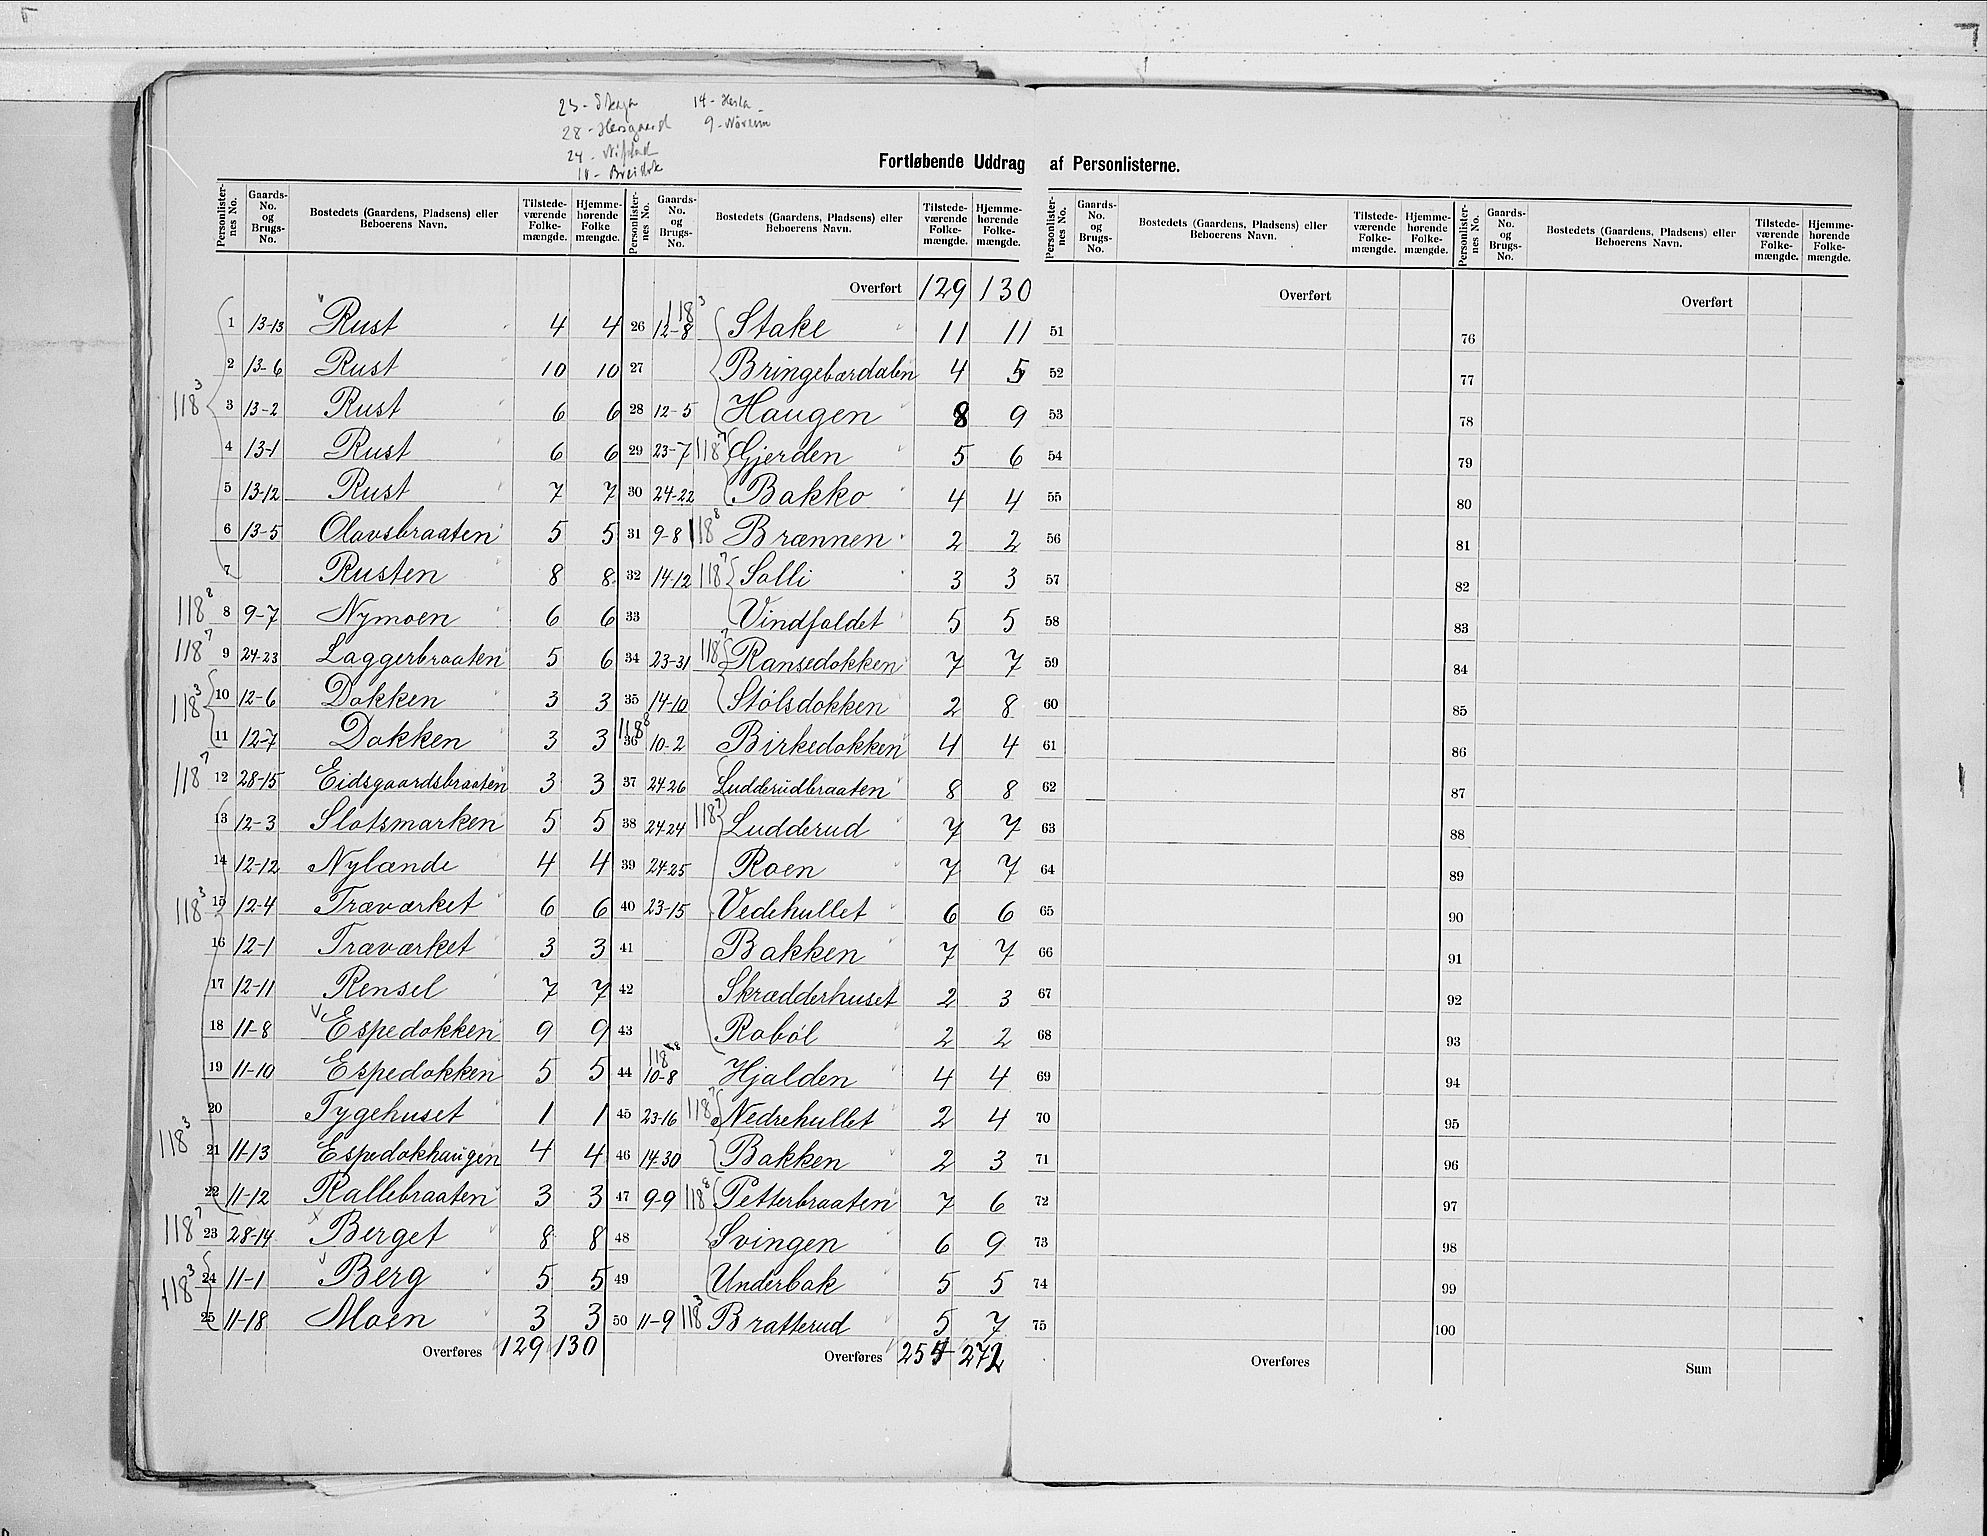 23 - Skaga 14 - Hesla
28 - Heisgaard 9 - Nórsem
24 -
10 - Breidok
Fortløbende Uddrag af Personlisterne.
Personlister-nes No. | Gaards-No. og Brugs-No. | Bostedets (Gaardens, Pladsens) eller Beboerens Navn. | Tilstede-værende Folke-mængde. | Hjemme-hørende Folke mængde.
1 13-13 Rust 4 4
2 13-6 Rust 10 10
118³ 3 13-2 Rust 6 6
4 13-1 Rust 6 6
5 13-12 Rust 7 7
6 13-5 Olavsbraaten 5 5
7 Rusten 8 8
118⁸ 8 9-7 Nymoen 6 6
118⁷ 9 24-23 Laggerbraaten 5 6
118³ 10 12-6 Dokken 3 3
11 12-7 Dokken 3 3
118⁷ 12 28-15 Eidsgaardsbraaten 3 3
13 12-3 Slotsmarken 5 5
14 12-12 Nylænde 4 4
118³ 15 12-4 Træværket 6 6
16 12-1 Træværket 3 3
17 12-11 Rensel 7 7
18 11-8 Espedokken 9 9
19 11-10 Espedokken 5 5
20 Tygehuset 1 1
118³ 21 11-13 Espedokhaugen 4 4
22 11-12 Kallebraaten 3 3
118⁷ 23 28-14 Berget 8 8
118³ 24 11-1 Berg 5 5
25 11-18 Moen 3 3
Overføres 129 130
Personlister-nes No. | Gaards-No. og Brugs-No. | Bostedets (Gaardens, Pladsens) eller Beboerens Navn. | Tilstede-værende Folke-mængde. | Hjemme-hørende Folke-mængde.
Overført 129 130
26 118³ 12-8 Stake 11 11
27 Bringebærdalen 4 5
28 12-5 Haugen 8 9
29 23-7 118⁷ Gjerden 5 6
30 24-22 Bakko 4 4
31 9-8 118⁸ Brænnen 2 2
32 14-12 118⁷ Solli 3 3
33 Vindfaldet 5 5
34 23-31 118⁷ Ransedokken 7 7
35 14-10 Stólsdokken 2 8
36 118⁸ 10-2 Birkedokken 4 4
37 24-26 Ludderudbraaten 8 8
38 24-24 118⁷ Ludderud 7 7
39 24-25 Roen 7 7
40 23-15 Vedehullet 6 6
41 Bakken 7 7
42 Skrædderhuset 2 3
43 Raból 2 2
44 118⁸ 10-8 Hjalden 4 4
45 23-16 118⁷ Nedrehullet 2 4
46 14-30 Bakken 2 3
47 9-9 118⁸ Petterbraaten 7 6
48 Svingen 6 9
49 Underbak 5 5
50 11-9 118³ Bratterud 5 7
Overføres 254 272
Personlister-nes No. | Gaards-No. og Brugs-No. | Bostedets (Gaardens, Pladsens) eller Beboerens Navn. | Tilstede-værende Folke-mængde. | Hjemme-hørende Folke-mængde.
Overført
51
52
53
54
55
56
57
58
59
60
61
62
63
64
65
66
67
68
69
70
71
72
73
74
75
Overføres
Personlister-nes No. | Gaards-No. og Brugs-No. | Bostedets (Gaardens, Pladsens) eller Beboerens Navn. | Tilstede-værende Folke-mængde. | Hjemme-hørende Folke-mængde.
Overført
76
77
78
79
80
81
82
83
84
85
86
87
88
89
90
91
92
93
94
95
96
97
98
99
100
Sum